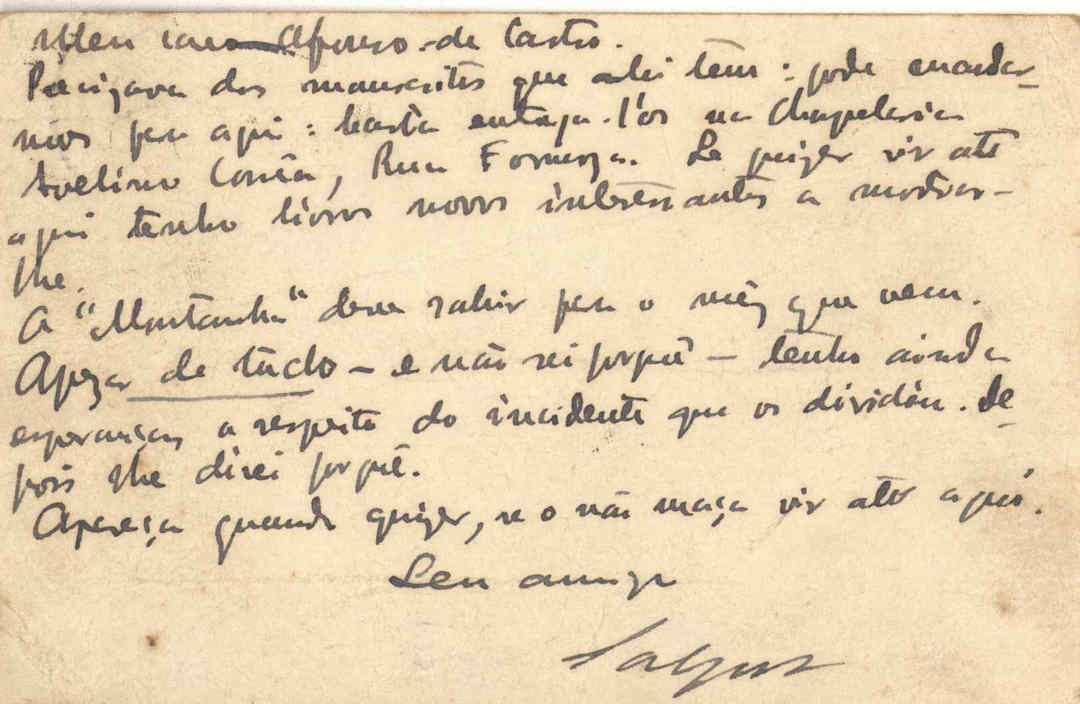 Meu caro Afonso de Castro.
Precizava dos manuscritos que ahi tem: pode mandar-
mos pra aqui: basta entrega-l'os na Chapelaria
Avelino Corrêa, Rua Formoza. Se quizer vir até
aqui tenho livros novos interessantes a mostrar-
lhe.
A "Montanha" deve sahir pra o mêz que vem.
Apezar de tudo - e não sei porquê - tenho ainda
esperanças a respeito do incidente que os dividiu. De-
pois lhe direi porquê.
Apareça quando quizer, se o não maça vir até aqui.
Seu amigo